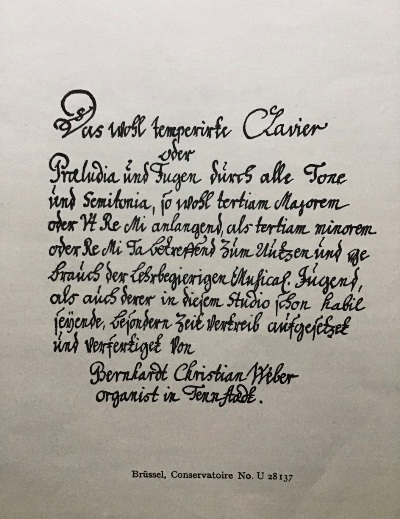 Das wohl temperirte Clavier
oder
Præludia und Fugen durch alle Tone
und Semitonia, so wohl tertiam Majorem
oder Vt Re Mi anlangend, als tertiam minorem
oder Re Mi Fa betreffend zum Nutzen und ge
brauch der Lehrbegierigen Musical. Jugend,
als auch derer in diesem Studio schon habil
seyende, besondern Zeit vertreib aufgesetzet
und verfertiget von
Bernhardt Christian Weber
organist in Tennstadt.
Brüssel, Conservatoire No. U 28137